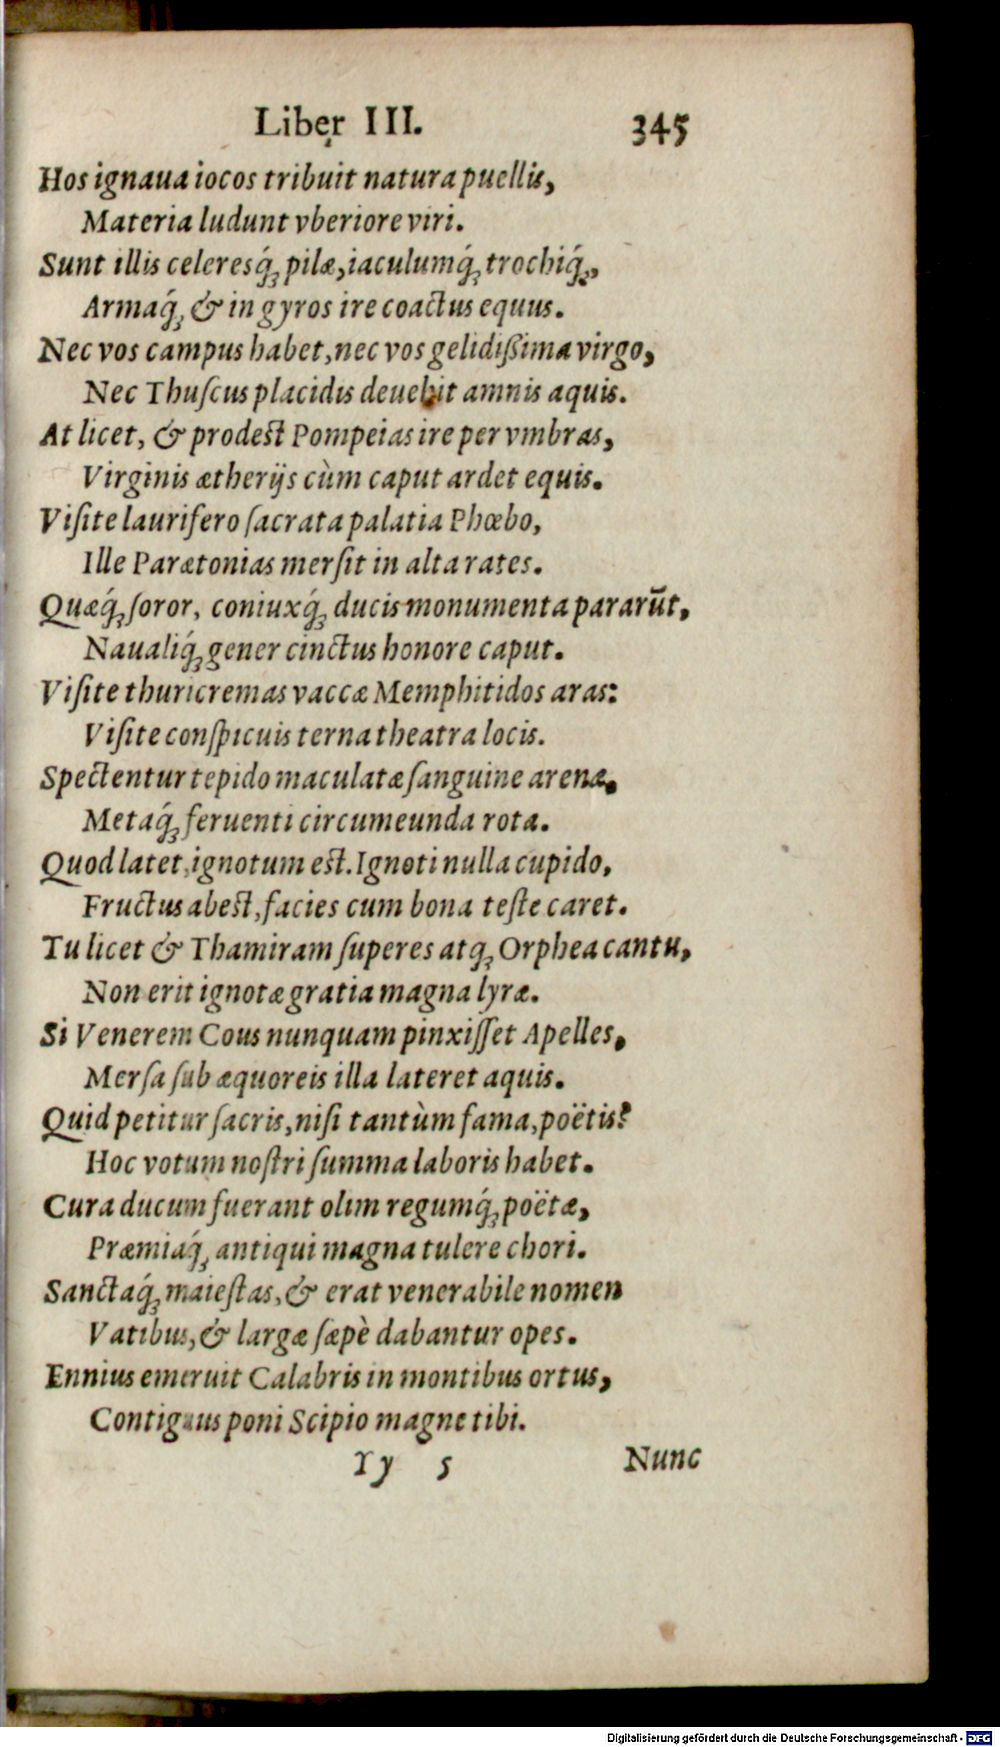 Liber III. 345
Hos ignaua iocos tribuit natura puellis,
Materia ludunt vberiore viri.
Sunt illis celeresq́; pilæ, iaculumq́; trochiq́;,
Armaq́; & in gyros ire coactus equus.
Nec vos campus habet, nec vos gelidißima virgo,
Nec Thuſcus placidis deuehit amnis aquis.
At licet, & prodest Pompeias ire per vmbras,
Virginis ætherijs cùm caput ardet equis.
Viſite laurifero ſacrata palatia Phœbo,
Ille Parætonias merſit in alta rates.
Quæq́; ſoror, coniuxq́; ducis monumenta pararūt,
Naualiq́; gener cinctus honore caput.
Viſite thuricremas vaccæ Memphitidos aras:
Viſite conſpicuis terna theatra locis.
Spectentur tepido maculatæ ſanguine arenæ,
Metaq́; feruenti circumeunda rota.
Quod latet, ignotum est. Ignoti nulla cupido,
Fructus abest, facies cum bona teſte caret.
Tu licet & Thamiram ſuperes atq; Orphea cantu,
Non erit ignotæ gratia magna lyræ.
Si Venerem Cous nunquam pinxiſſet Apelles,
Merſa ſub æquoreis illa lateret aquis.
Quid petitur ſacris, niſi tantùm fama, poëtis?
Hoc votum noſtri ſumma laboris habet.
Cura ducum fuerant olim regumq́; poëtæ,
Præmiaq́; antiqui magna tulere chori.
Sanctaq́; maieſtas, & erat venerabile nomen
Vatibus, & largæ ſæpè dabantur opes.
Ennius emeruit Calabris in montibus ortus,
Contiguus poni Scipio magne tibi.
Yy 5 Nunc
Digitalisierung gefördert durch die Deutsche Forschungsgemeinschaft - DFG